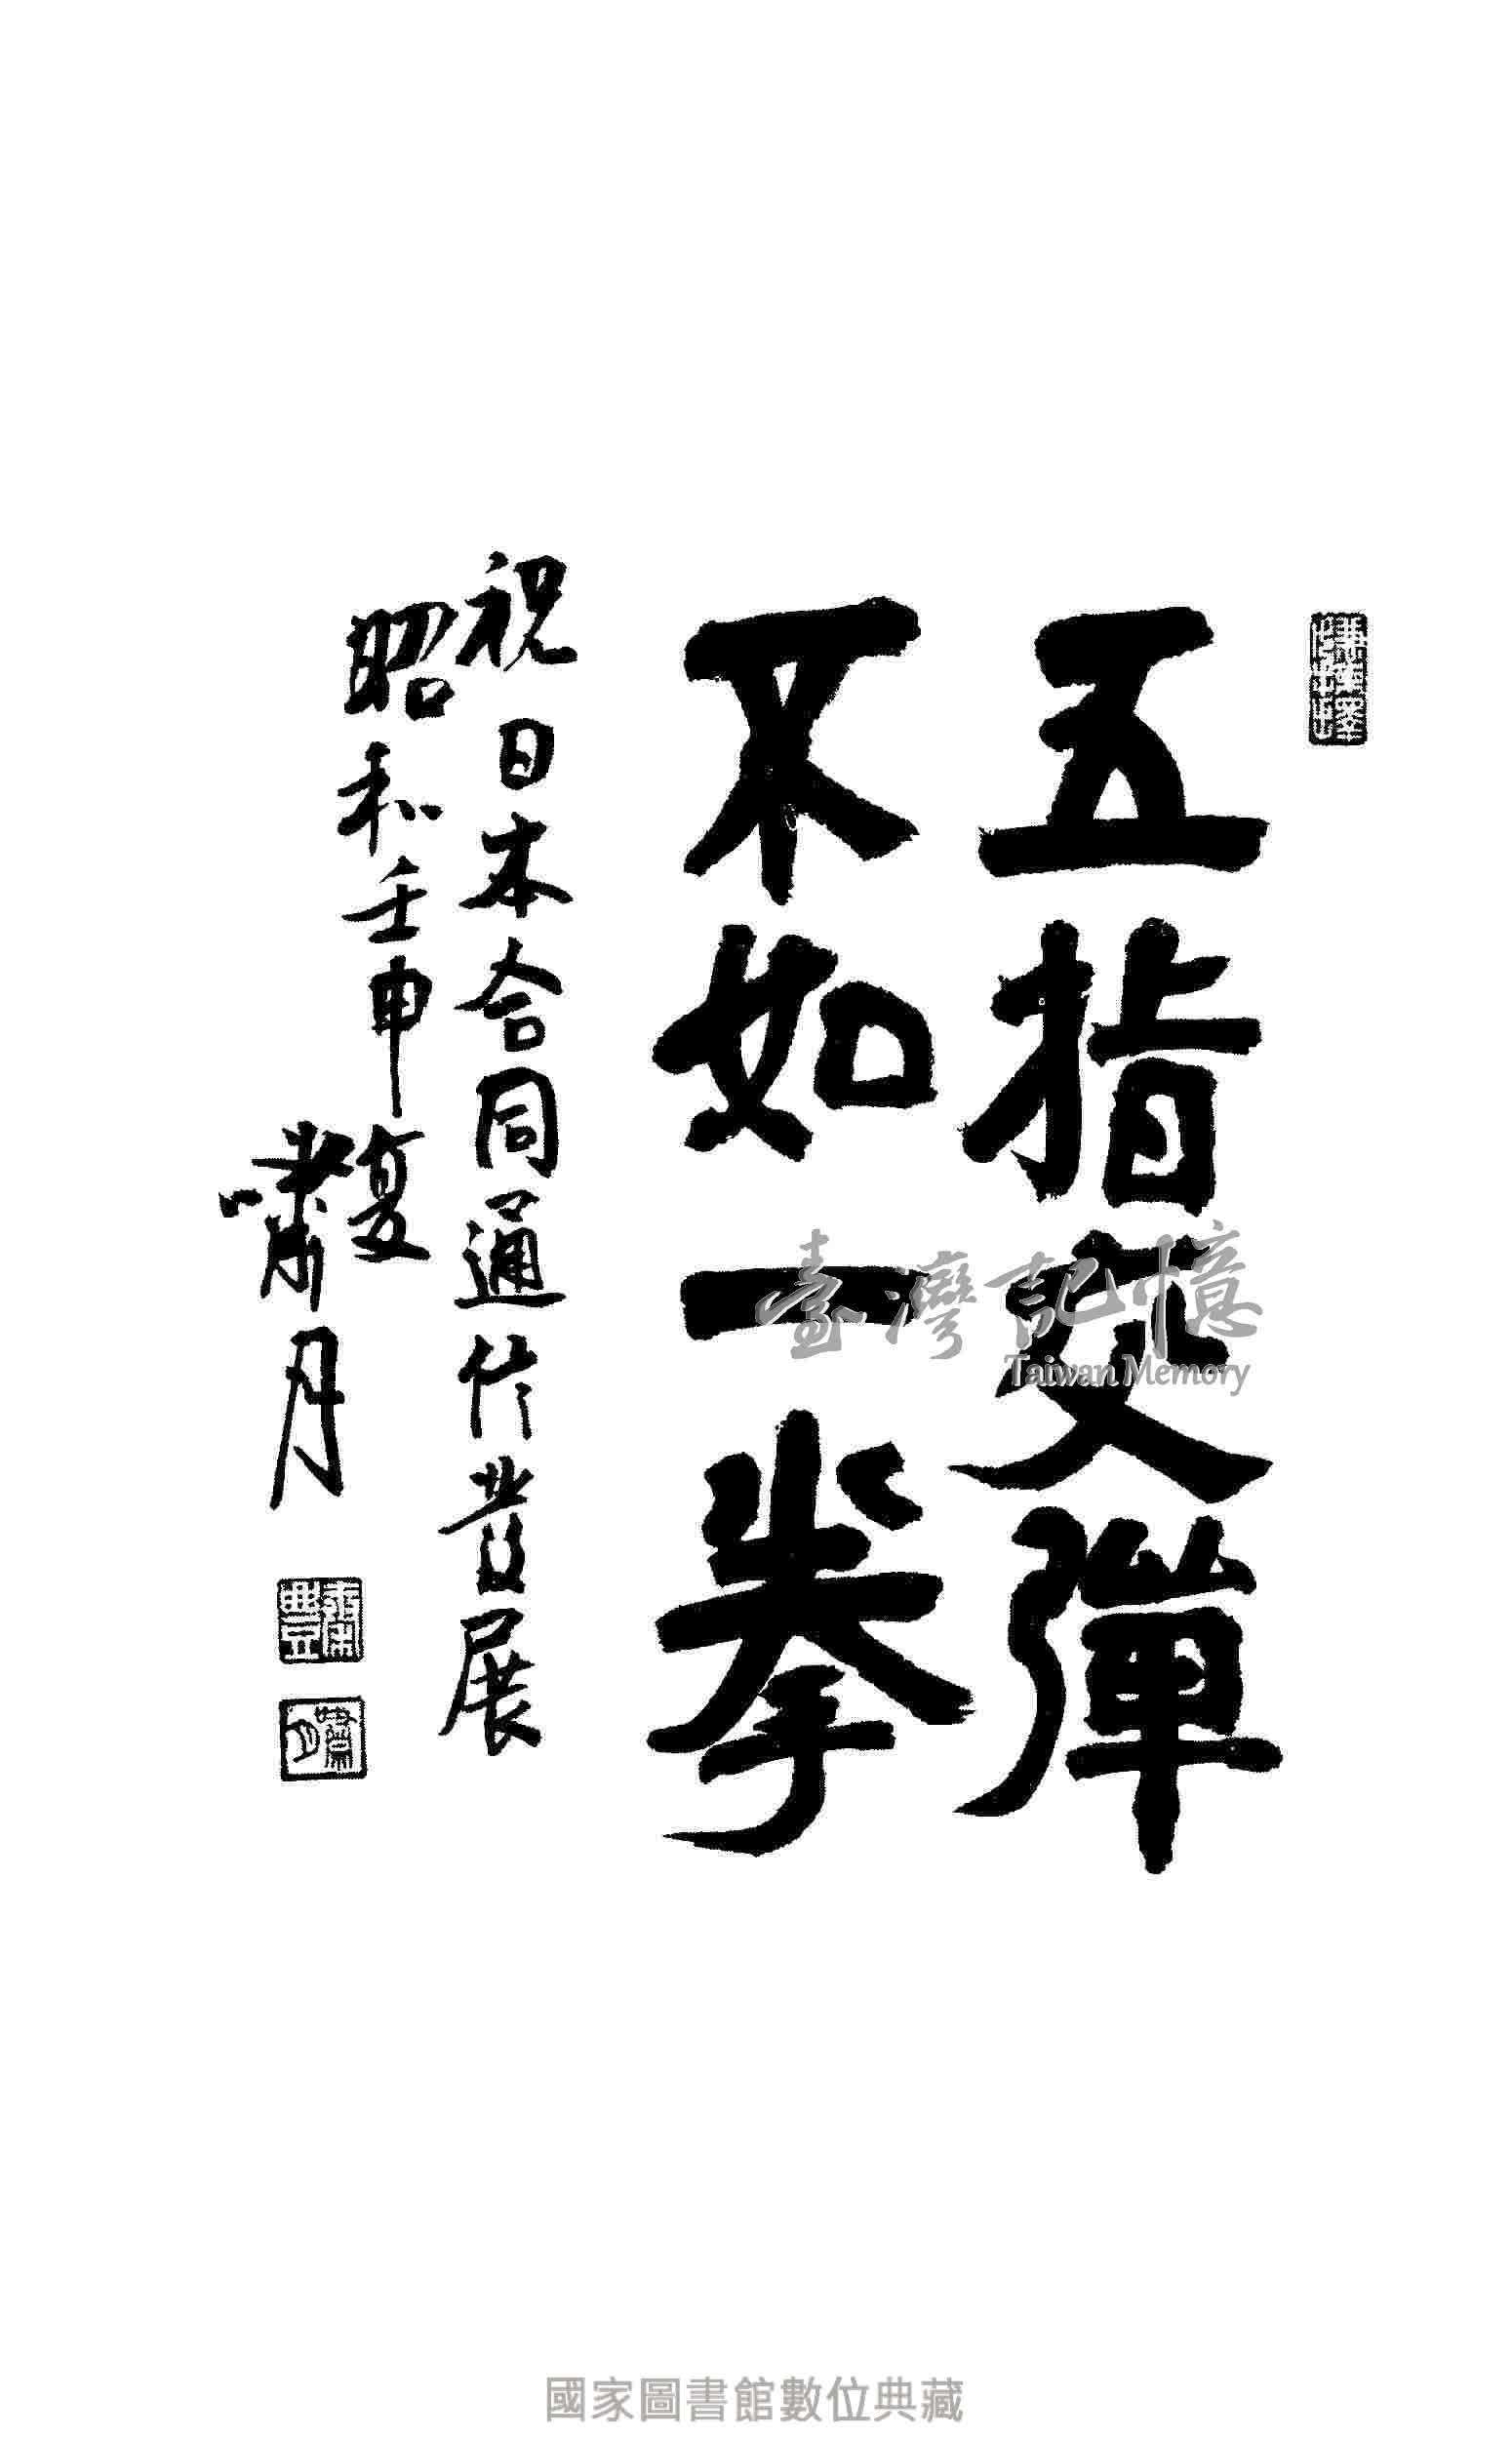 五指更彈
不如一拳
祝日本合同通信發展
昭和壬申夏
嘯月
臺灣記憶
Taiwan Memory
國家圖書館數位典藏